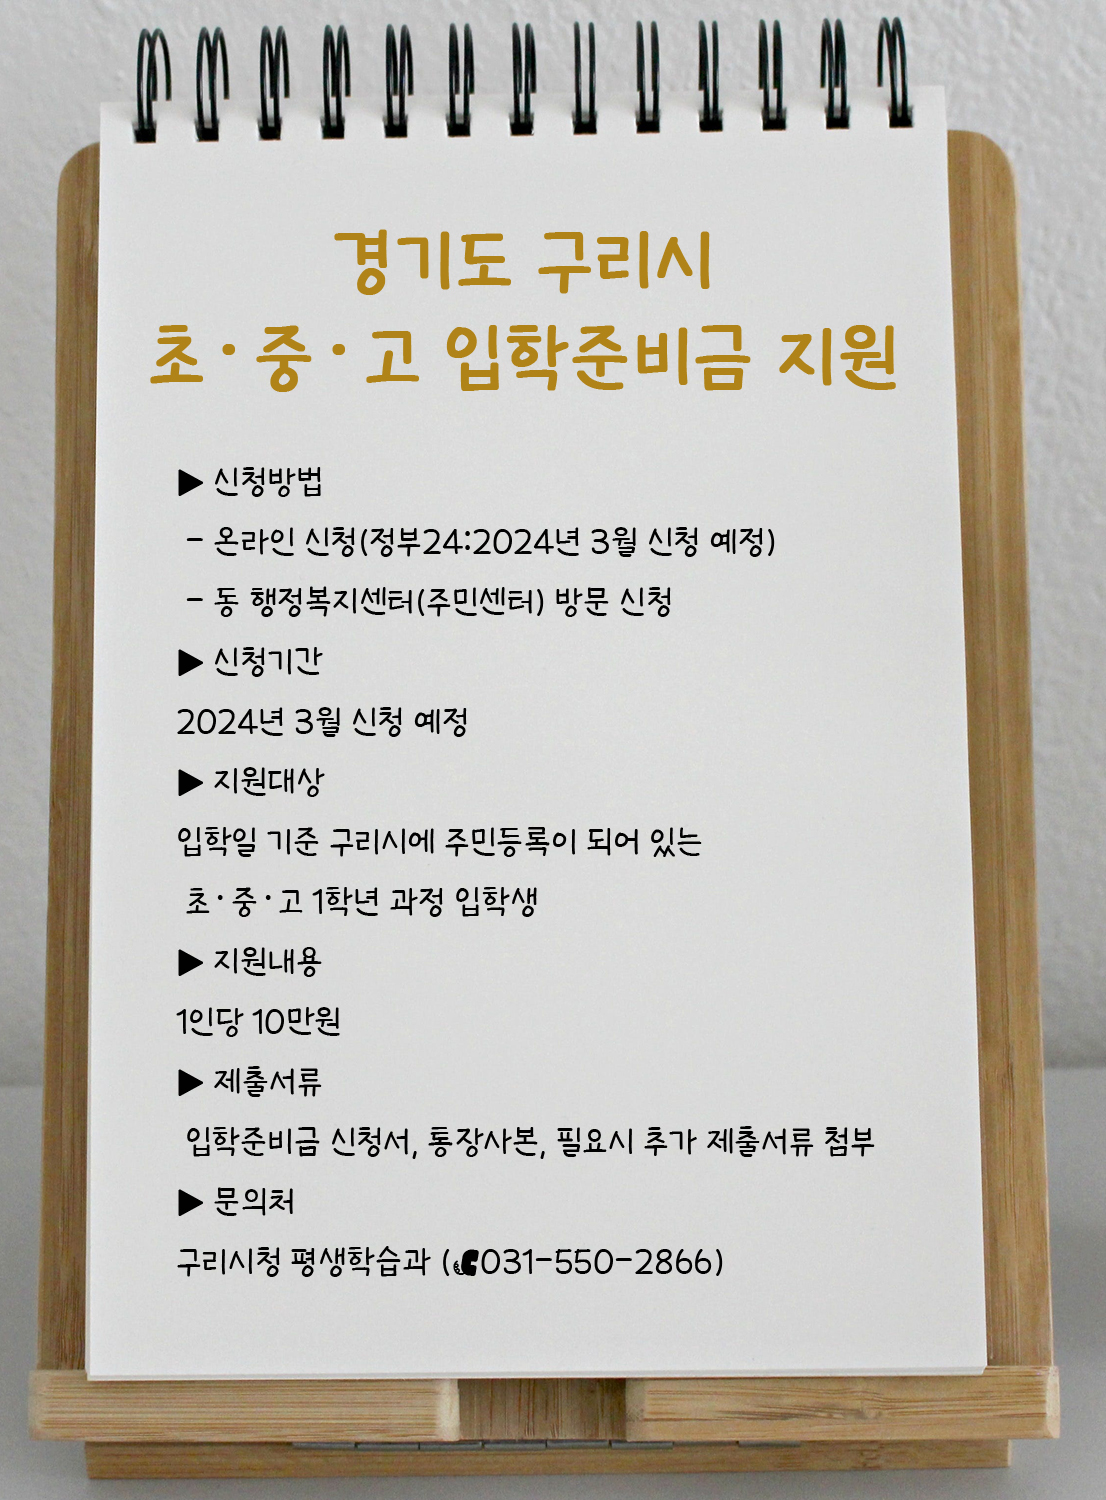 경기도 구리시
초·중·고 입학준비금 지원
▶ 신청방법
- 온라인 신청(정부24:2024년 3월 신청 예정)
- 동 행정복지센터(주민센터) 방문 신청
▶ 신청기간
2024년 3월 신청 예정
▶ 지원대상
입학일 기준 구리시에 주민등록이 되어 있는
초·중·고 1학년 과정 입학생
▶ 지원내용
1인당 10만원
▶ 제출서류
입학준비금 신청서, 통장사본, 필요시 추가 제출서류 첨부
▶ 문의처
구리시청 평생학습과 (✆031-550-2866)